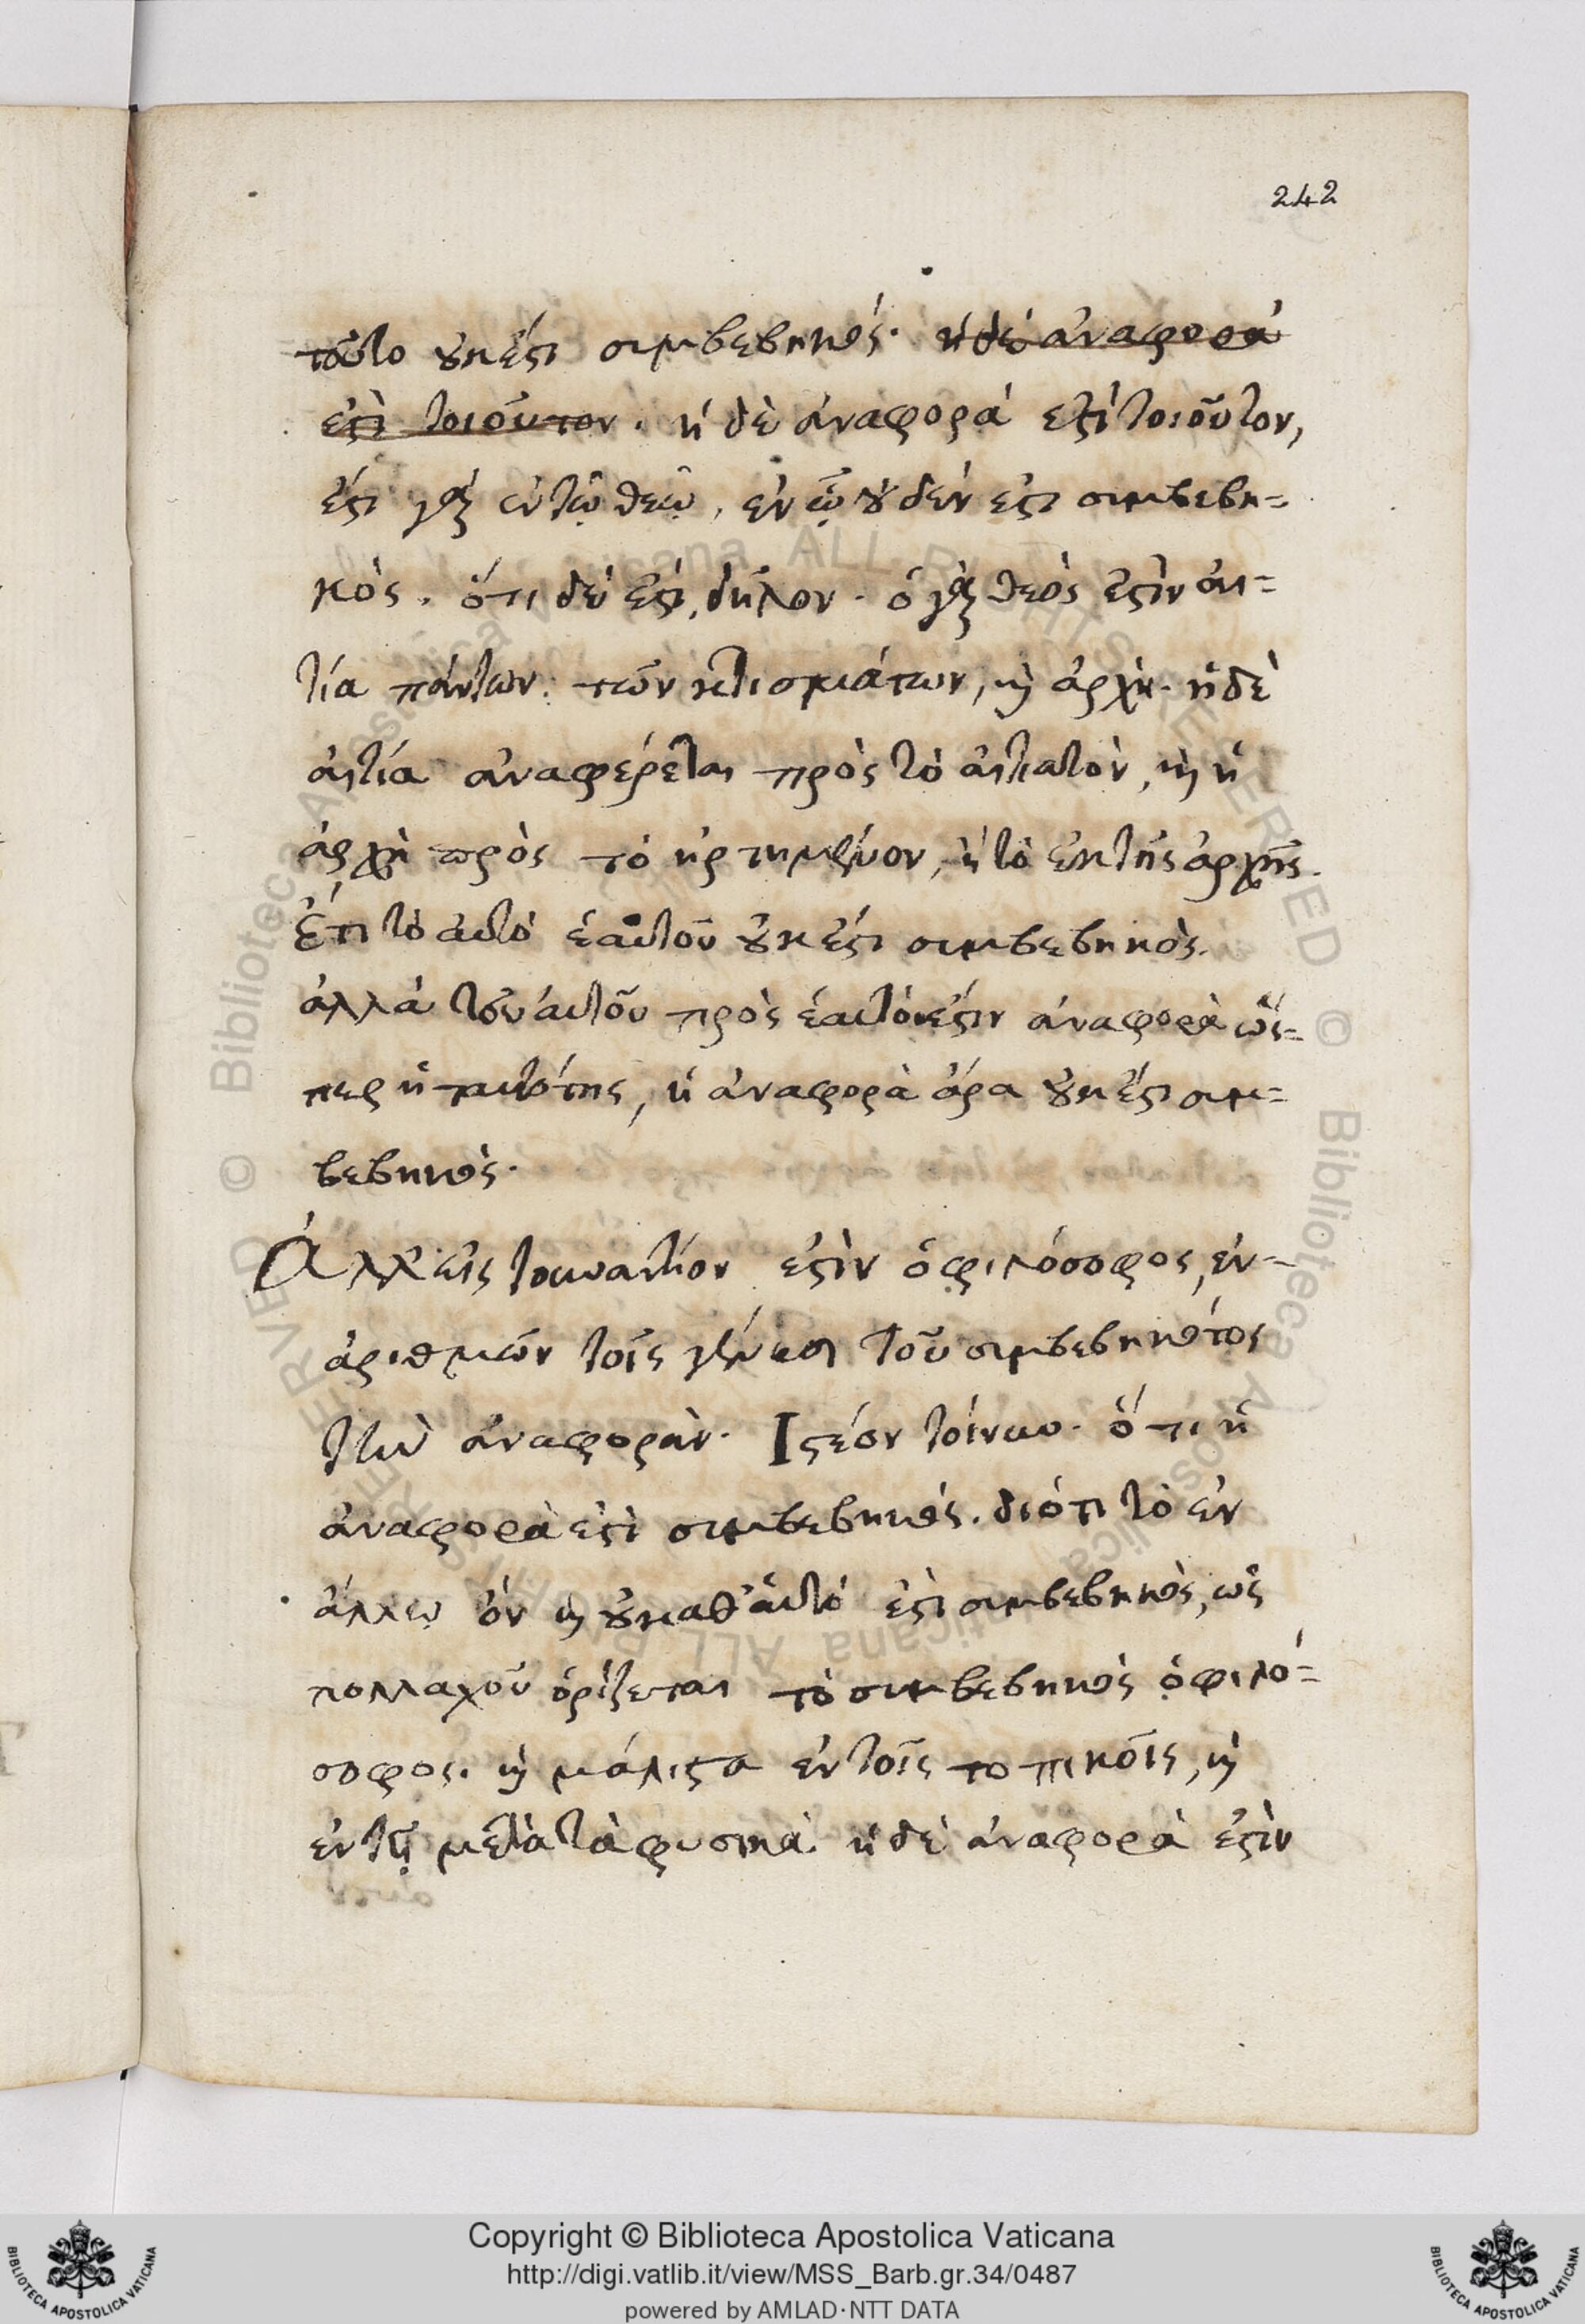 242
τοῦτο οὐκ ἔστι συμβεβηκός. ἡ δὲ ἀναφορά
ἐστὶ τοιοῦτον. ἡ δὲ ἀναφορά ἐστὶ τοιοῦτον,
ἔστι γὰρ ἐν τῷ θεῷ, ἐν ᾧ οὐδέν ἐστι συμβεβη=
κὸς. ὅτι δέ ἐστι, δῆλον. ὁ γὰρ θεὸς ἐστὶν αἰ=
τία πάντων τῶν κτισμάτων, καὶ ἀρχὴ. ἡ δὲ
αἰτία ἀναφέρεται πρὸς τὸ αἰτιατὸν, καὶ ἡ
ἀρχὴ πρὸς τὸ ἠρτημένον, ἢ τὸ ἐκ τῆς ἀρχῆς.
Ἔτι τὸ αὐτὸ ἑαυτοῦ οὐκ ἔστι συμβεβηκὸς.
ἀλλὰ τοῦ αὐτοῦ πρὸς ἑαυτό ἐστιν ἀναφορὰ ὥς=
περ ἡ ταυτότης, ἡ ἀναφορὰ ἄρα οὐκ ἔστι συμ=
βεβηκός.
Ἀλλ' εἰς τουναντίον ἐστὶν ὁ φιλόσοφος, ἐν-
αριθμῶν τοῖς γένεσι τοῦ συμβεβηκότος
τὴν ἀναφορὰν. Ιστέον τοίνυν. ὅτι ἡ
ἀναφορὰ ἐστὶ συμβεβηκός. διότι τὸ ἐν
ἄλλῳ ὂν καὶ οὐ καθ' αὑτό ἐστι συμβεβηκὸς, ὡς
πολλαχοῦ ὁρίζεται τὸ συμβεβηκὸς ὁ φιλό=
σοφος. καὶ μάλιστα ἐν τοῖς τοπικοῖς, καὶ
ἐν τῇ μετὰ τὰ φυσικά. ἡ δὲ ἀναφορὰ ἐστὶν
Copyright © Biblioteca Apostolica Vaticana
http://digi.vatlib.it/view/MSS_Barb.gr.34/0487
powered by AMLAD·NTT DATA